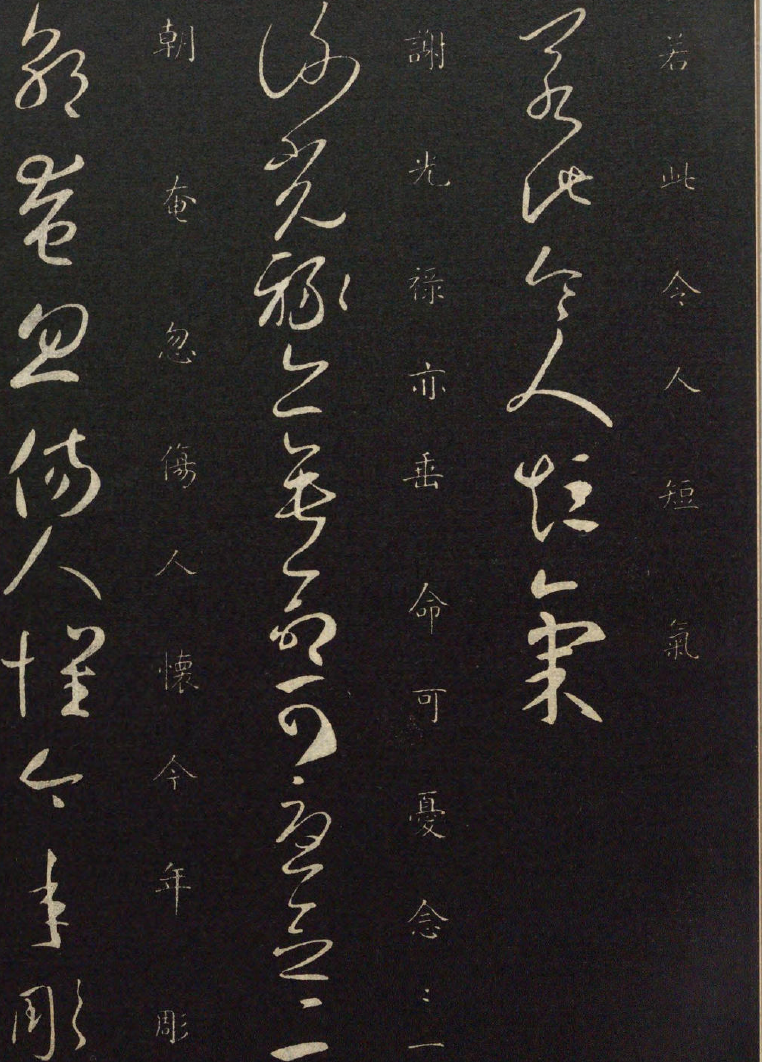 若此令人短氣
若此令人短氣
謝光禄亦垂命可憂念〻一
謝光禄亦垂命可憂念〻一
朝奄忽傷人懷今年彫
朝奄忽傷人懷今年彫